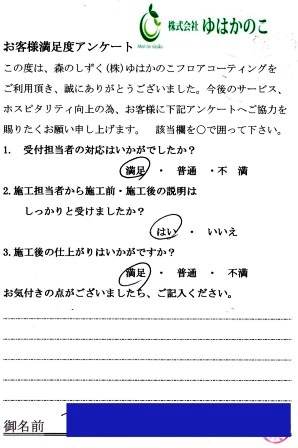 株式会社 ゆはかのこ
お客様満足度アンケート
この度は、森のしずく(株)ゆはかのこフロアコーティングを
ご利用頂き、誠にありがとうございました。今後のサービス、
ホスピタリティ向上の為、お客様に下記アンケートへご協力を
賜りたくお願い申し上げます。 該当欄を〇で囲って下さい。
1. 受付担当者の対応はいかがでしたか?
満足 ・ 普通 ・不 満
2.施工担当者から施工前・施工後の説明は
しっかりと受けましたか?
はい ・ いいえ
3.施工後の仕上がりはいかがですか?
満足 ・ 普通 ・ 不満
お気付きの点がございましたら、ご記入ください。
御名前